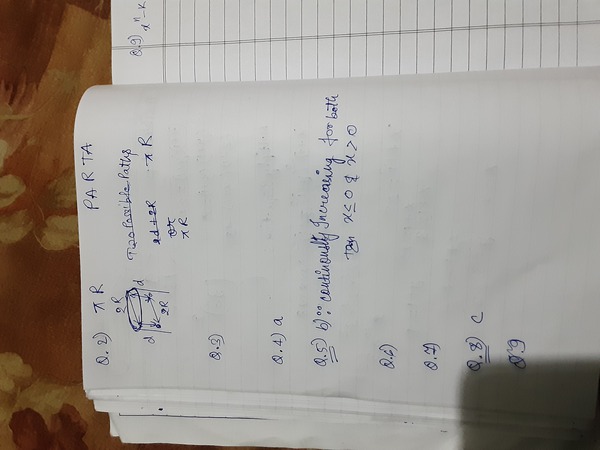 PART A
Q.2) πR
2R
d
d
2R
Two Possible Paths
2d+2R
or
πR
πR
Q.3)
Q.4) a
Q.5) b) ∵ continously Increasing for both
x ≤ 0 & x > 0
Q.6)
Q.7)
Q.8) c
Q.9
Q.9) xⁿ - k